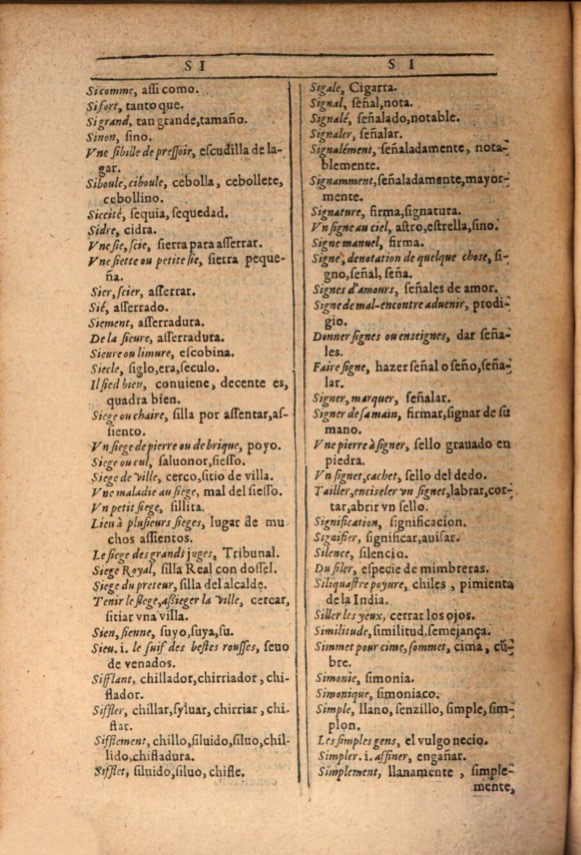 SI
Sicomme, aſſi como.
Sifort, tanto que.
Sigrand, tan grande, tamaño.
Sinon, ſino.
Vne ſibille de preſſoir, eſcudilla de la-
gar.
Siboule, ciboule, cebolla, cebollete,
cebollino.
Siccité, ſequia, ſequedad.
Sidre, cidra.
Vne ſie, ſcie, ſierra para aſſerrar.
Vne ſiette ou petite ſie, ſierra peque-
ña.
Sier, ſcier, aſſerrar.
Sié, aſſerrado.
Siement, aſſerradura.
De la ſieure, aſſerradura.
Sieure ou limure, eſcobina.
Siecle, ſiglo, era, ſeculo.
Il ſied bien, conuiene, decente es,
quadra bien.
Siege ou chaire, ſilla por aſſentar, aſ-
ſiento.
Vn ſiege de pierre ou de brique, poyo.
Siege ou cul, ſaluonor, ſieſſo.
Siege de ville, cerco, ſitio de villa.
Vne maladie au ſiege, mal del ſieſſo.
Vn petit ſiege, ſillita.
Lieu à pluſieurs ſieges, lugar de mu
chos aſſientos.
Le ſiege des grands juges, Tribunal.
Siege Royal, ſilla Real con doſſel.
Siege du preteur, ſilla del alcalde.
Tenir le ſiege, aſſieger la ville, cercar,
ſitiar vna villa.
Sien, ſienne, ſuyo, ſuya, ſu.
Sieu. i. le ſuif des beſtes rouſſes, ſeuo
de venados.
Sifflant, chillador, chirriador, chi-
flador.
Siffler, chillar, ſyluar, chirriar, chi-
flar.
Sifflement, chillo, ſiluido, ſiluo, chil-
lido, chifladura.
Sifflet, ſiluido, ſiluo, chifle.
SI
Sigale, Cigarta.
Signal, ſeñal, nota.
Signalé, ſeñalado, notable.
Signaler, ſeñalar.
Signalément, ſeñaladamente, nota-
blemente.
Signamment, ſeñaladamente, mayor-
mente.
Signature, firma, ſignatura.
Vn ſigne au ciel, aſtro, eſtrella, ſino.
Signe manuel, firma.
Signe, denotation de quelque choſe, ſi-
gno, ſeñal, ſeña.
Signes d'amours, ſeñales de amor.
Signe de mal-encontre aduenir, prodi-
gio.
Donner ſignes ou enseignes, dar ſeña-
les.
Faire ſigne, hazer ſeñal o ſeño, ſeña-
lar.
Signer, marquer, ſeñalar.
Signer de ſa main, firmar, ſignar de ſu
mano.
Vne pierre à ſigner, ſello grauado en
piedra.
Vn ſignet, cachet, ſello del dedo.
Tailler, enciseler vn ſignet, labrar, cor-
tar, abrir vn ſello.
Signification, ſignificacion.
Signifier, ſignificar, auiſar.
Silence, ſilencio.
Du ſiler, eſpecie de mimbreras.
Siliquaſtre poyure, chiles, pimienta
de la India.
Siller les yeux, cerrar los ojos.
Similitude, ſimilitud, ſemejança.
Simmet pour cime, ſommet, cima, cũ-
bre.
Simonie, ſimonia.
Simonique, ſimoniaco.
Simple, llano, ſenzillo, ſimple, ſim-
plon.
Les ſimples gens, el vulgo necio.
Simpler. i. affiner, engañar.
Simplement, llanamente, ſimple-
mente,